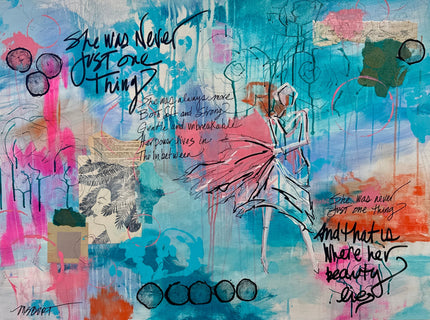 She was Never
Just one
Thing
She was always more
Both and Strong
Gentle and unbreakable
Her power lives in
The Inbetween
She was never
Just one thing
And that is
Where her
beauty